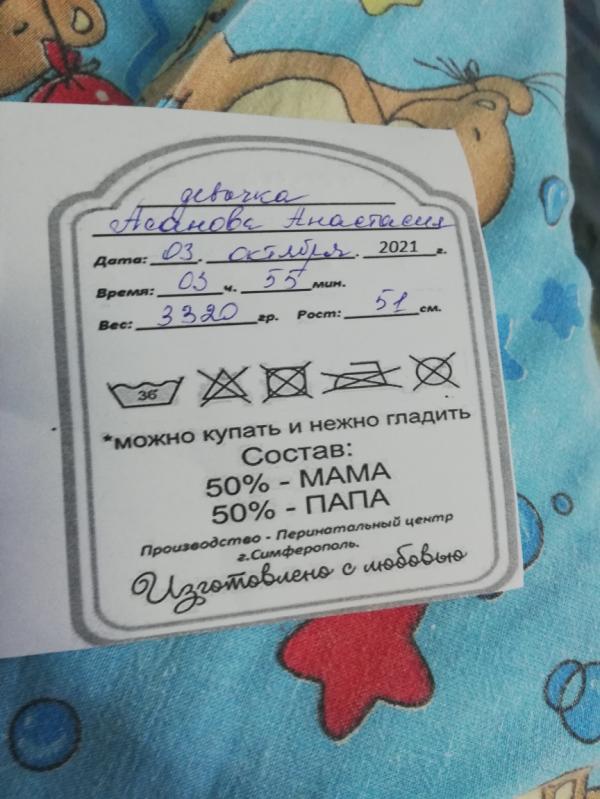 девочка
Асанова Анастасия
Дата: 03. октября. 2021 г.
Время: 03 ч. 55 мин.
Вес: 3320 гр. Рост: 51 см.
36
*можно купать и нежно гладить
Состав:
50% - МАМА
50% - ПАПА
Производство - Перинатальный центр
г.Симферополь.
Изготовлено с любовью